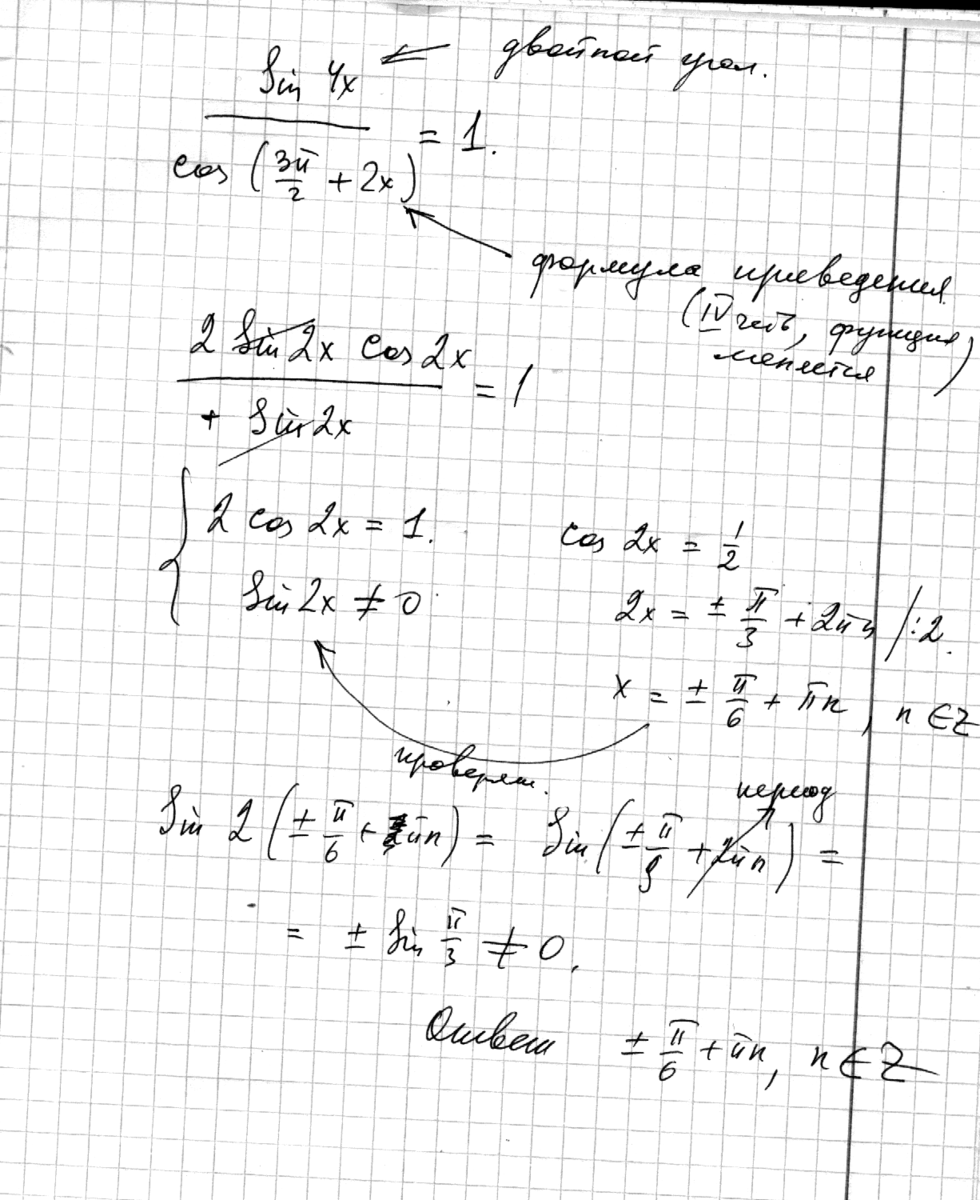 sin 4x ⇐ двойной угол.
――― = 1.
cos (3π/2 + 2x)
формула приведения
(IV четв, функция
меняется)
2 sin 2x cos 2x
――― = 1
+ sin 2x
{ 2 cos 2x = 1.
sin 2x ≠ 0
cos 2x = 1/2
2x = ± π/3 + 2πn /:2.
x = ± π/6 + πn, n ∈ Z
проверяем.
период
sin 2 (± π/6 + πn) = sin (± π/3 + 2πn) =
= ± sin π/3 ≠ 0.
Ответ ± π/6 + πn, n ∈ Z